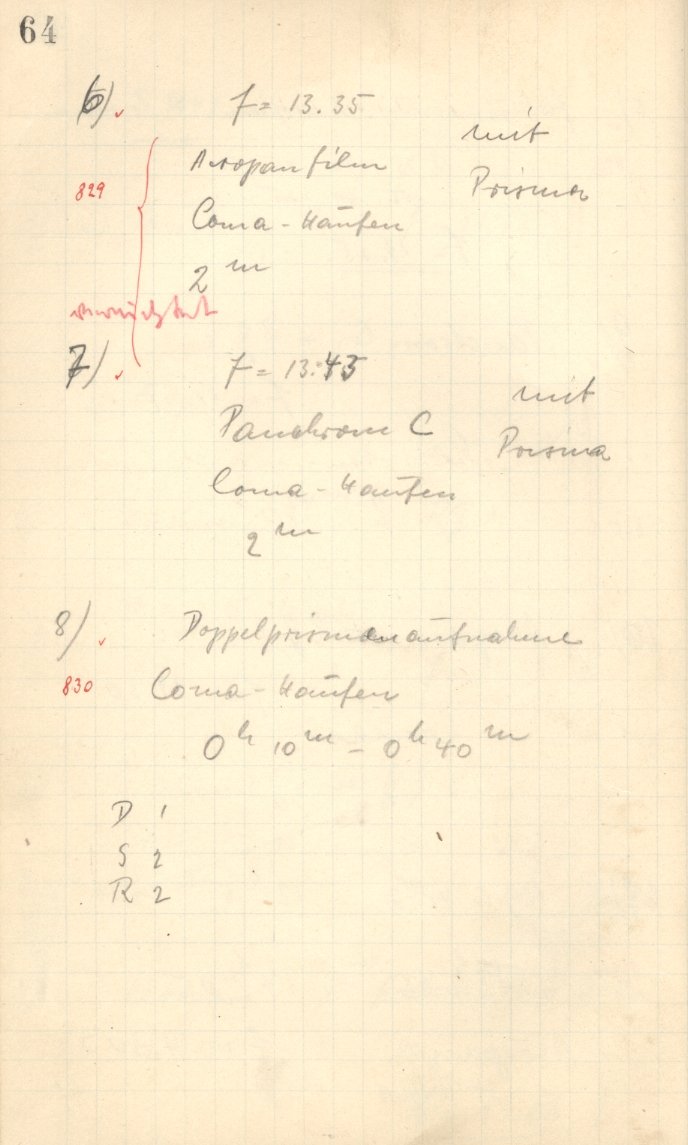 64
6) f = 13.35
mit
Aeropanfilm
Prisma
829
Coma-Haufen
2 m
vernichtet
7) f = 13.45
mit
Panchrom C
Prisma
Coma-Haufen
2 m
8) Doppelprismenaufnahme
830 Coma-Haufen
0 h 10 m – 0 h 40 m
D 1
S 2
R 2